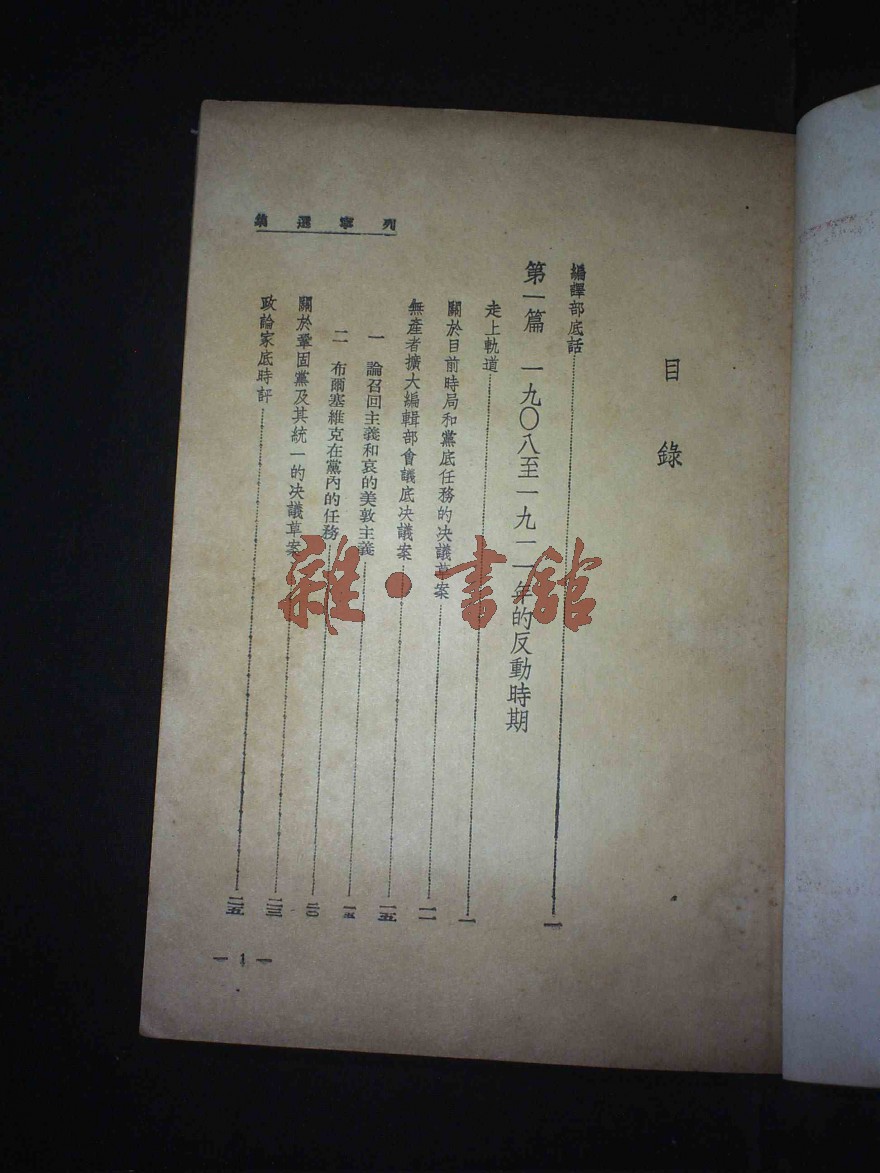 列寧選集
目錄
編譯部底話 一
第一篇 一九〇八至一九一一年的反動時期
走上軌道 一
關於目前時局和黨底任務的决議草案 一一
無產者擴大編輯部會議底决議案 一五
一 論召回主義和哀的美敦主義 一五
二 布爾塞維克在黨內的任務 二〇
關於鞏固黨及其統一的决議草案 二三
政論家底時評 二五
— 1 —
雜·書館